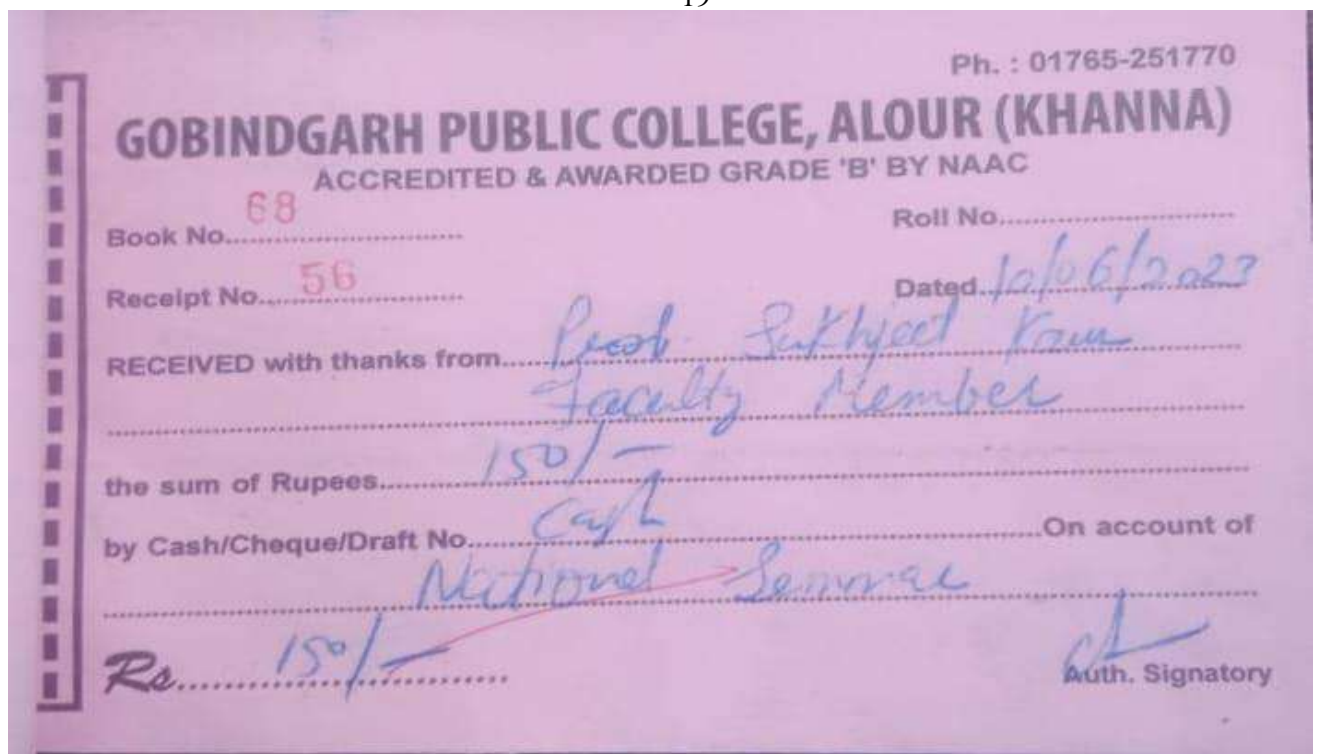 19
Ph. : 01765-251770
GOBINDGARH PUBLIC COLLEGE, ALOUR (KHANNA)
ACCREDITED & AWARDED GRADE 'B' BY NAAC
Book No. 68 Roll No.
Receipt No. 56 Dated 10/06/2023
RECEIVED with thanks from Prof. Sukhjeet Kaur
Faculty Member
the sum of Rupees 150/-
by Cash/Cheque/Draft No. Cash On account of
National Seminar
Rs. 150/-
Auth. Signatory